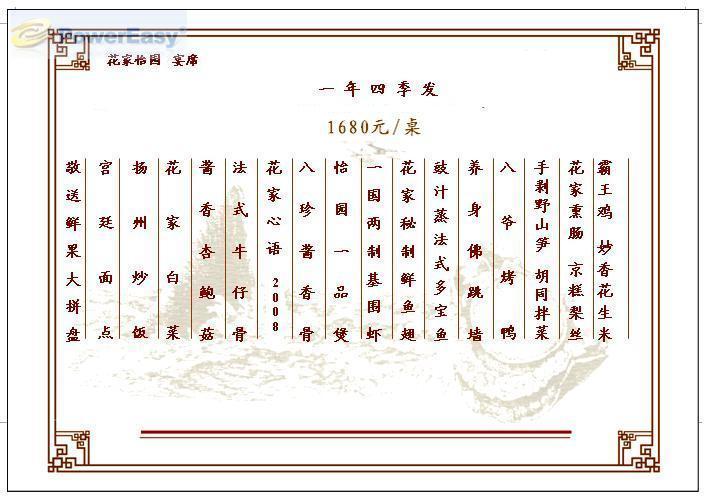 PowerEasy
花家怡园 宴席
一年四季发
1680元/桌
霸王鸡 炒香花生米
花家熏肠 京糕梨丝
手剥野山笋 胡同拌菜
八爷烤鸭
养身佛跳墙
豉汁蒸法式多宝鱼
花家秘制鲜鱼翅
一国两制基围虾
怡园一品煲
八珍酱香骨
花家心语 2008
法式牛仔骨
酱香杏鲍菇
花家白菜
扬州炒饭
宫廷面点
敬送鲜果大拼盘